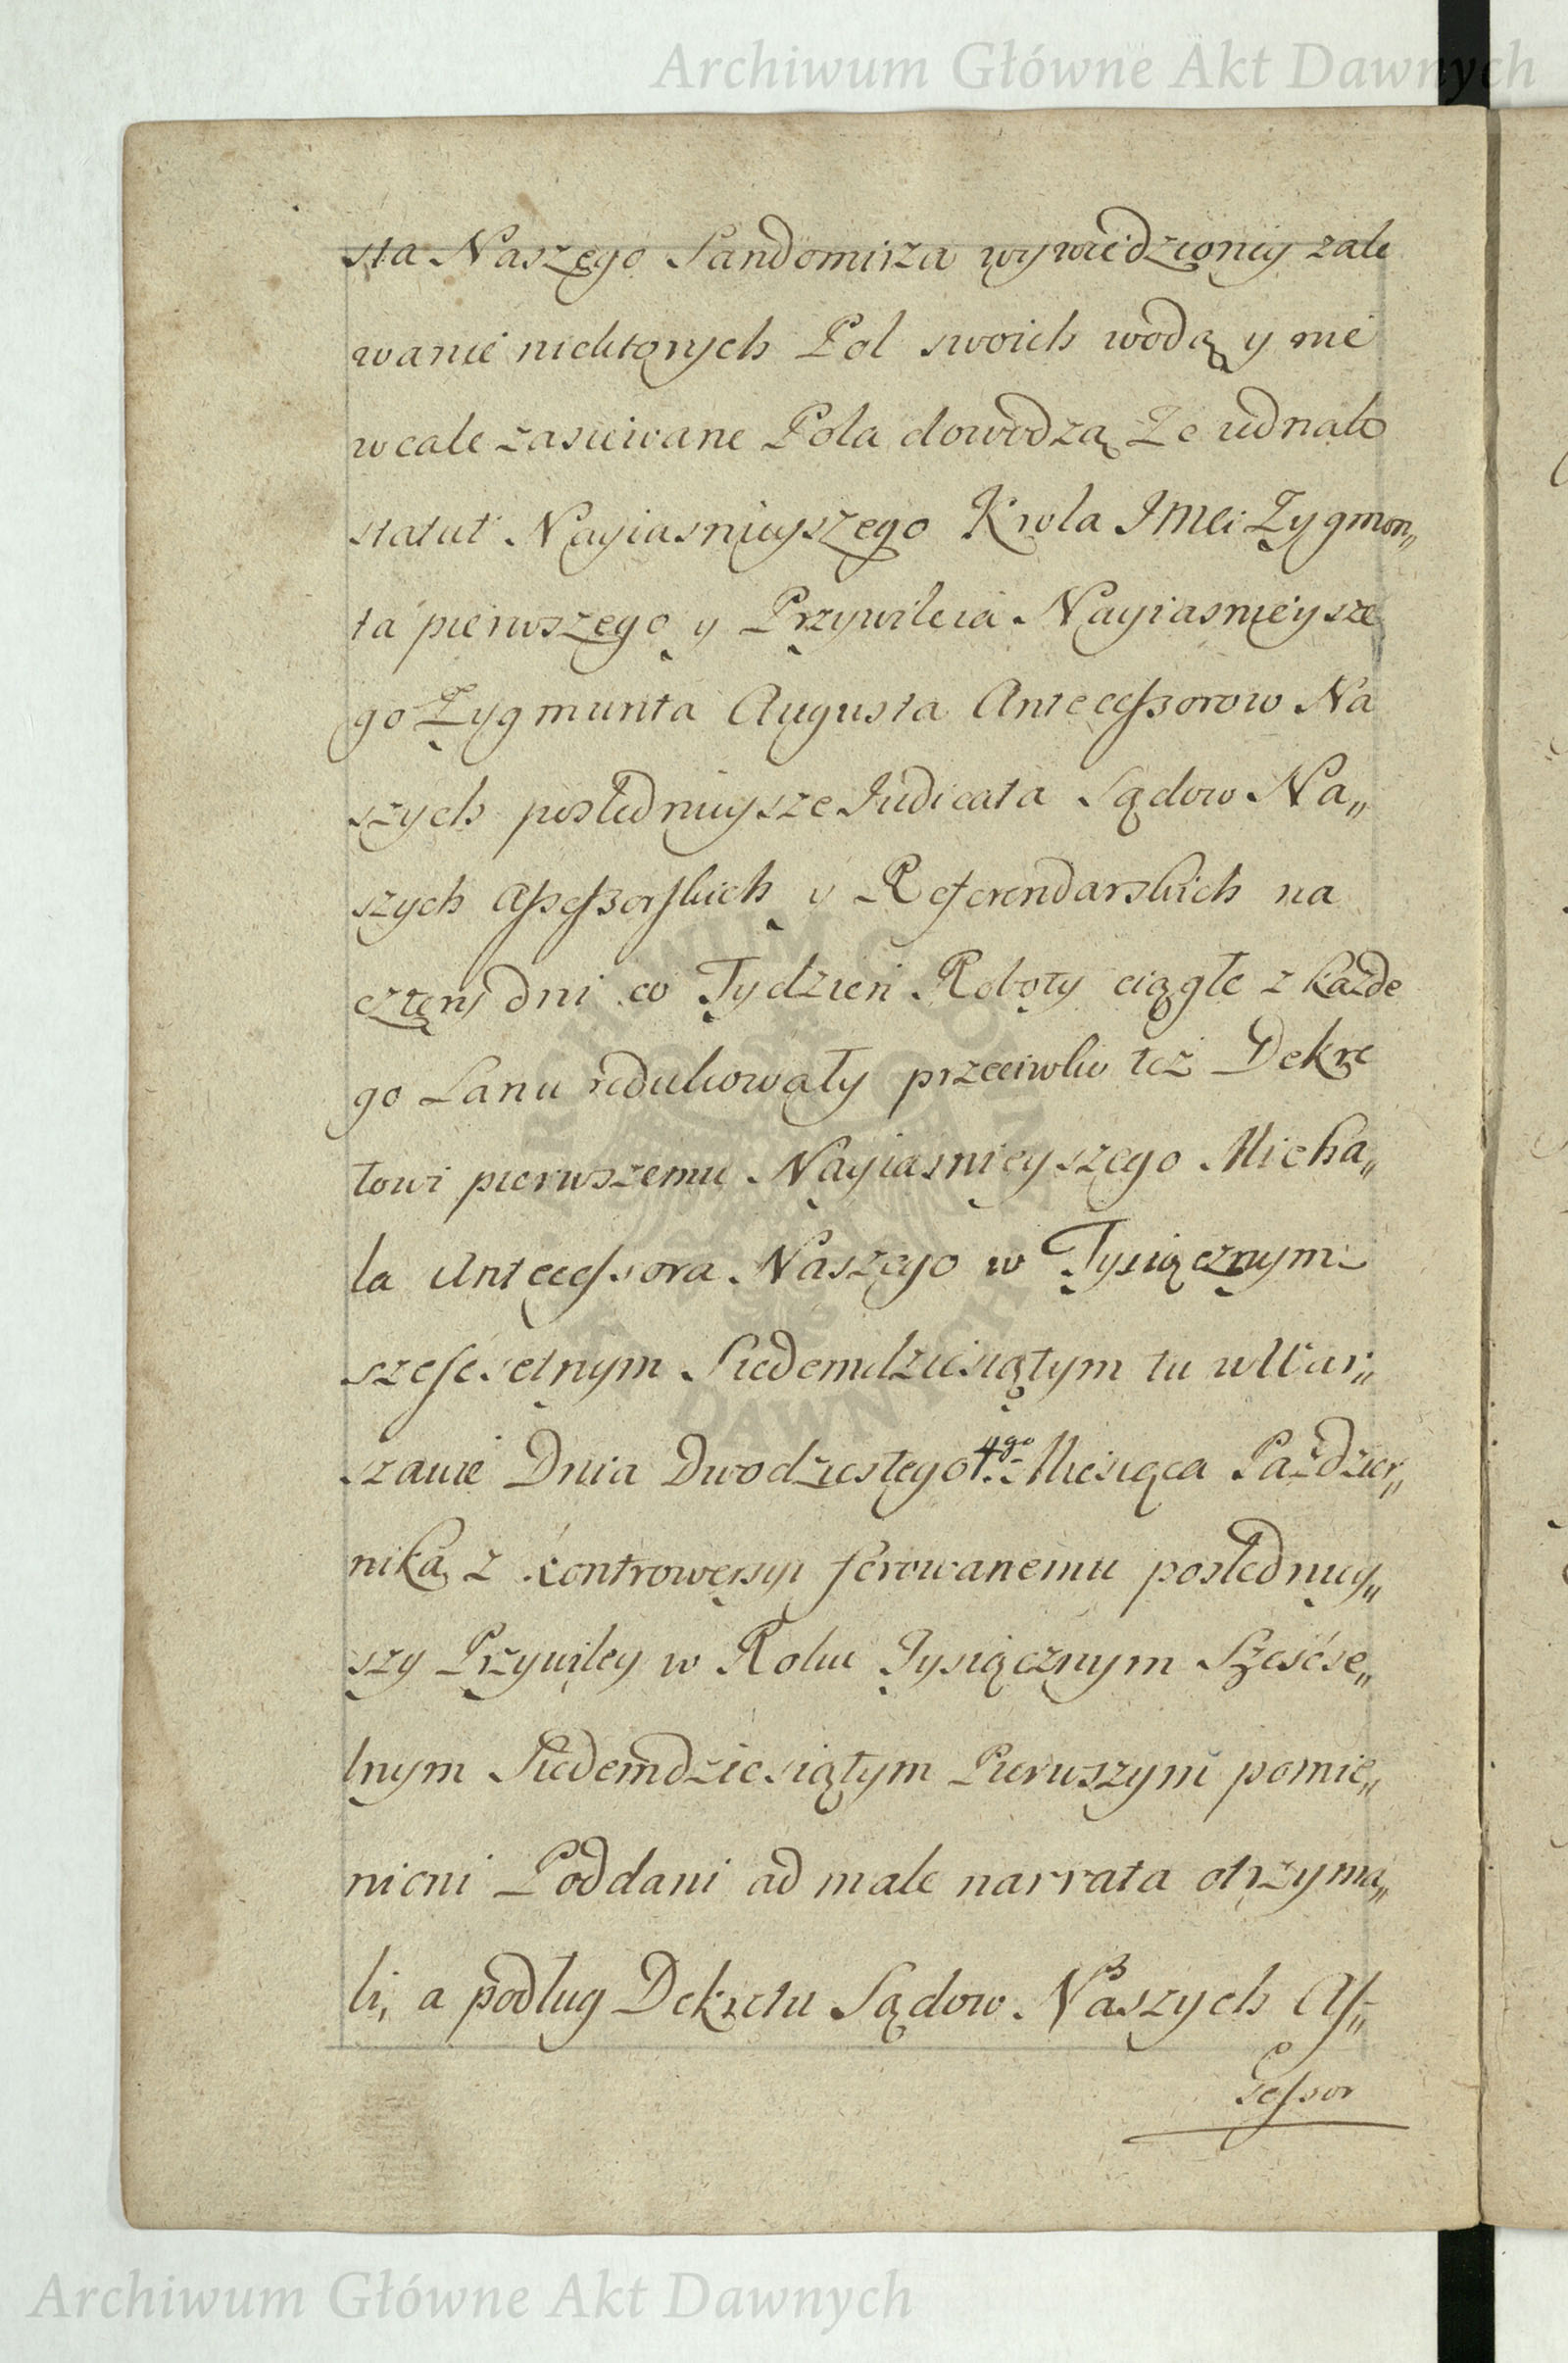 Archiwum Główne Akt Dawnych
sta Naszego Sandomirza wywiedzioney zale
wanie niektorych Pol swoich wodą y nie
wcale zasiewane Pola dowodzą Ze iednak
statut Nayiasnieyszego Krola JMci Zygmon„
ta pierwszego y Przywileia Nayiasnieysze
go Zygmunta Augusta Antecessorow Na
szych poslednieysze Iudicata Sądow Na„
szych Assessorskich y Referendarskich na
cztery dni co Tydzień Roboty ciągłe z każde
go Łanu redukowały przeciwko też Dekre
towi pierwszemu Nayiasnieyszego Micha„
ła Antecessora Naszego w Tysiącznym
szescsetnym Siedemdziesiątym tu w War„
szawie Dnia Dwodziestego 4go Miesiąca Paździer„
nika z kontrowersyi ferowanemu poslednięy„
szy Przywiley w Roku Tysiącznym Sześćse„
tnym Siedemdziesiątym Pierwszym pomie„
nieni Poddani ad male narrata otrzyma„
li, a podług Dekretu Sądow Naszych As„
sessor
ARCHIWUM GŁÓWNE AKT DAWNYCH
Archiwum Główne Akt Dawnych